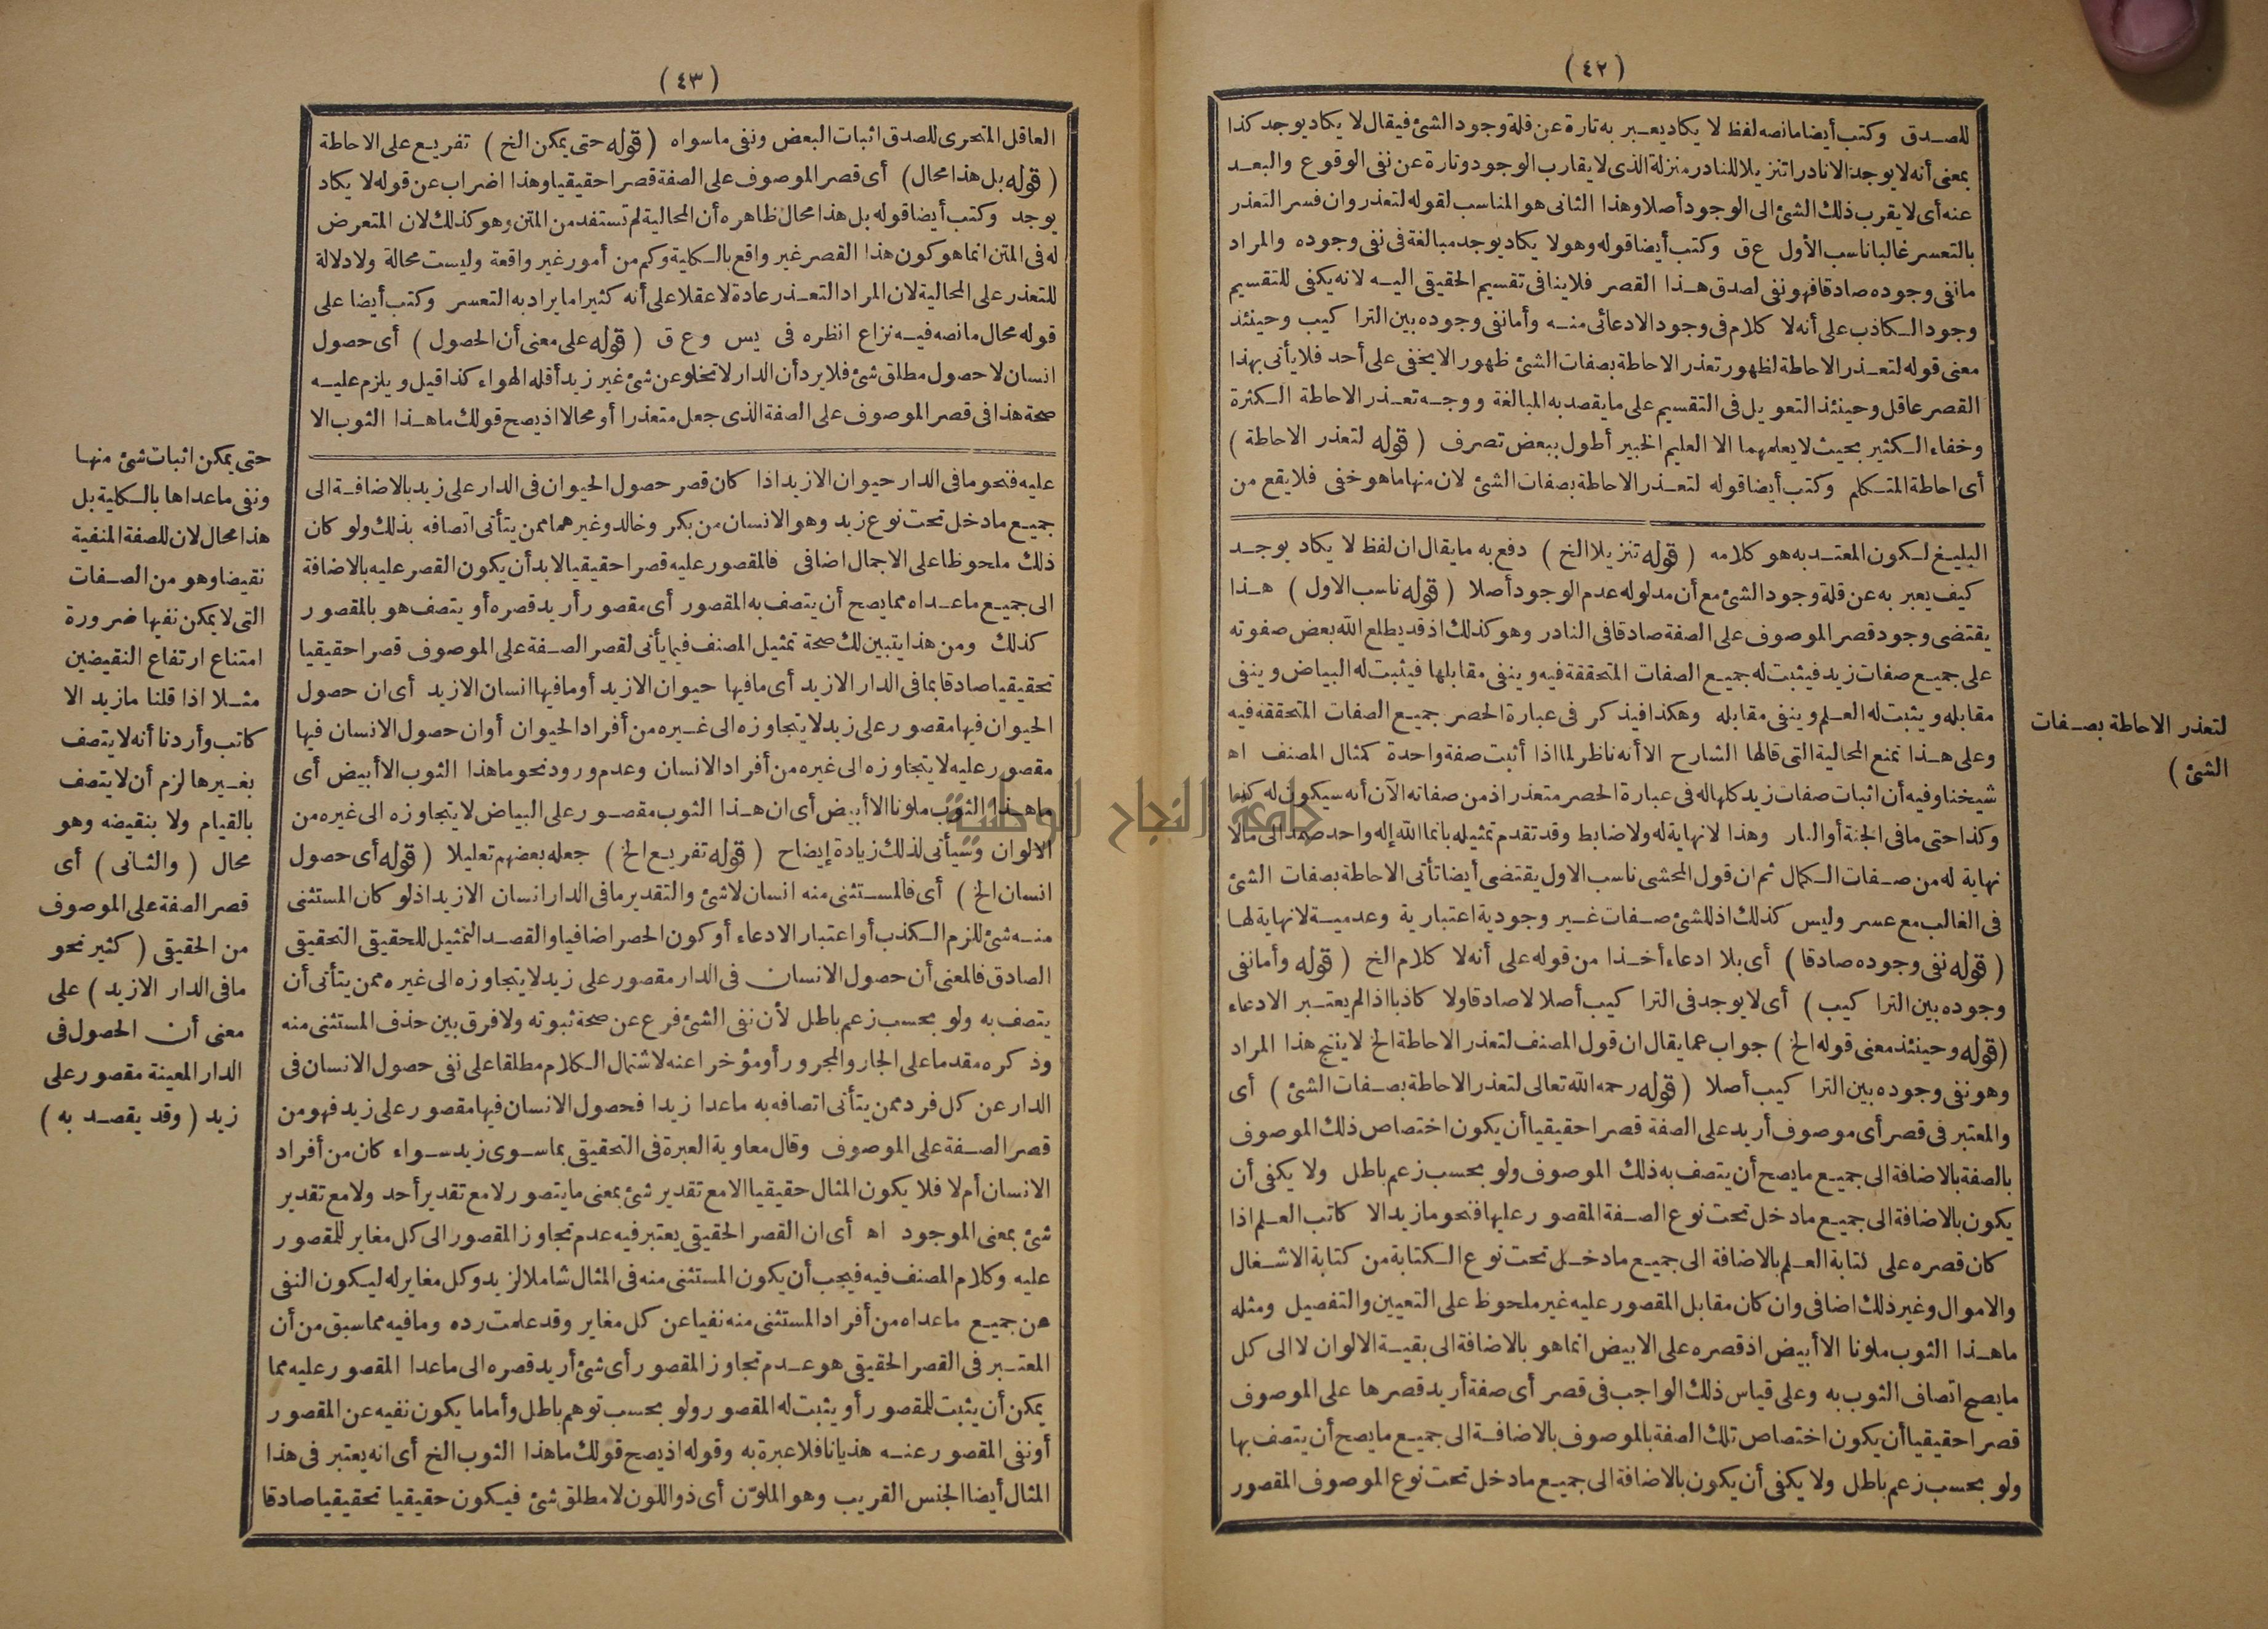 (٤٢)
للصدق وكتب أيضا مانصه لفظ لا يكاد يعبر به تارة عن قلة وجود الشئ فيقال لا يكاد يوجد كذا
بمعنى أنه لا يوجد الا نادرا تنزيلا للنادر منزلة الذى لا يقارب الوجود وتارة عن نفى الوقوع والبعد
عنه أى لا يقرب ذلك الشئ الى الوجود أصلا وهذا الثانى هو المناسب لقوله لتعذر وان فسر التعذر
بالتعسر غالبا ناسب الأول ع ق وكتب أيضا قوله وهو لا يكاد يوجد مبالغة فى نفى وجوده والمراد
مانفى وجوده صادقا فهو نفى لصدق هذا القصر فلا ينافى تقسيم الحقيقى اليه لانه يكفى للتقسيم
وجود الكاذب على أنه لا كلام فى وجود الادعائى منه وأما نفى وجوده بين التراكيب وحينئذ
معنى قوله لتعذر الاحاطة لظهور تعذر الاحاطة بصفات الشئ ظهورا لا يخفى على أحد فلا يأتى بهذا
القصر عاقل وحينئذ التعويل فى التقسيم على ما يقصد به المبالغة ووجه تعذر الاحاطة الكثرة
وخفاء الكثير بحيث لا يعلمهما الا العليم الخبير أطول ببعض تصرف (قوله لتعذر الاحاطة)
أى احاطة المتكلم وكتب أيضا قوله لتعذر الاحاطة بصفات الشئ لان منها ما هو خفى فلا يقع من
البليغ لكون المعتد به هو كلامه (قوله تنزيلا الخ) دفع به ما يقال ان لفظ لا يكاد يوجد
كيف يعبر به عن قلة وجود الشئ مع أن مدلوله عدم الوجود أصلا (قوله ناسب الاول) هذا
يقتضى وجود قصر الموصوف على الصفة صادقا فى النادر وهو كذلك اذ قد يطلع الله بعض صفوته
على جميع صفات زيد فيثبت له جميع الصفات المتحققة فيه وينفى مقابلها فيثبت له البياض وينفى
مقابله ويثبت له العلم وينفى مقابله وهكذا فيذكر فى عبارة الحصر جميع الصفات المتحققة فيه
وعلى هذا تمنع المحالية التى قالها الشارح الا أنه ناظر لما اذا أثبت صفة واحدة كمثال المصنف اه
شيخنا وفيه أن اثبات صفات زيد كلها له فى عبارة الحصر متعذر اذ من صفاته الآن أنه سيكون له كذا
وكذا حتى ما فى الجنة أو النار وهذا لا نهاية له ولا ضابط وقد تقدم تمثيله بانما الله إله واحد صمد الى ما لا
نهاية له من صفات الكمال ثم ان قول المحشى ناسب الاول يقتضى أيضا تأتى الاحاطة بصفات الشئ
فى الغالب مع عسر وليس كذلك اذ للشئ صفات غير وجودية اعتبارية وعدمية لا نهاية لها
(قوله نفى وجوده صادقا) أى بلا ادعاء أخذا من قوله على أنه لا كلام الخ (قوله وأما نفى
وجوده بين التراكيب) أى لا يوجد فى التراكيب أصلا لا صادقا ولا كاذبا اذا لم يعتبر الادعاء
(قوله وحينئذ معنى قوله الخ) جواب عما يقال ان قول المصنف لتعذر الاحاطة الخ لا ينتج هذا المراد
وهو نفى وجوده بين التراكيب أصلا (قوله رحمه الله تعالى لتعذر الاحاطة بصفات الشئ) أى
والمعتبر فى قصر أى موصوف أريد على الصفة قصرا حقيقيا أن يكون اختصاص ذلك الموصوف
بالصفة بالاضافة الى جميع ما يصح أن يتصف به ذلك الموصوف ولو بحسب زعم باطل ولا يكفى أن
يكون بالاضافة الى جميع ما دخل تحت نوع الصفة المقصور عليها فنحو ما زيد الا كاتب العلم اذا
كان قصره على كتابة العلم بالاضافة الى جميع ما دخل تحت نوع الكتابة من كتابة الاشغال
والاموال وغير ذلك اضافى وان كان مقابل المقصور عليه غير ملحوظ على التعيين والتفصيل ومثله
ما هذا الثوب ملونا الا أبيض اذ قصره على الابيض انما هو بالاضافة الى بقية الالوان لا الى كل
ما يصح اتصاف الثوب به وعلى قياس ذلك الواجب فى قصر أى صفة أريد قصرها على الموصوف
قصرا حقيقيا أن يكون اختصاص تلك الصفة بالموصوف بالاضافة الى جميع ما يصح أن يتصف بها
ولو بحسب زعم باطل ولا يكفى أن يكون بالاضافة الى جميع ما دخل تحت نوع الموصوف المقصور
لتعذر الاحاطة بصفات
الشئ)
(٤٣)
العاقل المتحرى للصدق اثبات البعض ونفى ما سواه (قوله حتى يمكن الخ) تفريع على الاحاطة
(قوله بل هذا محال) أى قصر الموصوف على الصفة قصرا حقيقيا وهذا اضراب عن قوله لا يكاد
يوجد وكتب أيضا قوله بل هذا محال ظاهره أن المحالية لم تستفد من المتن وهو كذلك لان المتعرض
له فى المتن انما هو كون هذا القصر غير واقع بالكلية وكم من أمور غير واقعة وليست محالة ولا دلالة
للتعذر على المحالية لان المراد التعذر عادة لا عقلا على أنه كثيرا ما يراد به التعسر وكتب أيضا على
قوله محال مانصه فيه نزاع انظره فى يس و ع ق (قوله على معنى أن الحصول) أى حصول
انسان لا حصول مطلق شئ فلا يرد أن الدار لا تخلو عن شئ غير زيد أقله الهواء كذا قيل ويلزم عليه
صحة هذا فى قصر الموصوف على الصفة الذى جعل متعذرا أو محالا اذ يصح قولك ما هذا الثوب الا
عليه فنحو ما فى الدار حيوان الا زيد اذا كان قصر حصول الحيوان فى الدار على زيد بالاضافة الى
جميع ما دخل تحت نوع زيد وهو الانسان من بكر وخالد وغيرهما ممن يتأتى اتصافه بذلك ولو كان
ذلك ملحوظا على الاجمال اضافى فالمقصور عليه قصرا حقيقيا لابد أن يكون القصر عليه بالاضافة
الى جميع ما عداه مما يصح أن يتصف به المقصور أى مقصور أريد قصره أو يتصف هو بالمقصور
كذلك ومن هذا يتبين لك صحة تمثيل المصنف فيما يأتى لقصر الصفة على الموصوف قصرا حقيقيا
تحقيقيا صادقا بما فى الدار الا زيد أى ما فيها حيوان الا زيد أو ما فيها انسان الا زيد أى ان حصول
الحيوان فيها مقصور على زيد لا يتجاوزه الى غيره من أفراد الحيوان أو ان حصول الانسان فيها
مقصور عليه لا يتجاوزه الى غيره من أفراد الانسان وعدم ورود نحو ما هذا الثوب الا أبيض أى
ما هذا الثوب ملونا الا أبيض أى ان هذا الثوب مقصور على البياض لا يتجاوزه الى غيره من
الالوان وسيأتى لذلك زيادة إيضاح (قوله تفريع الخ) جعله بعضهم تعليلا (قوله أى حصول
انسان الخ) أى فالمستثنى منه انسان لا شئ والتقدير ما فى الدار انسان الا زيد اذ لو كان المستثنى
منه شئ للزم الكذب أو اعتبار الادعاء أو كون الحصر اضافيا والقصد التمثيل للحقيقى التحقيقى
الصادق فالمعنى أن حصول الانسان فى الدار مقصور على زيد لا يتجاوزه الى غيره ممن يتأتى أن
يتصف به ولو بحسب زعم باطل لأن نفى الشئ فرع عن صحة ثبوته ولا فرق بين حذف المستثنى منه
وذكره مقدما على الجار والمجرور أو مؤخرا عنه لاشتمال الكلام مطلقا على نفى حصول الانسان فى
الدار عن كل فرد ممن يتأتى اتصافه به ما عدا زيدا فحصول الانسان فيها مقصور على زيد فهو من
قصر الصفة على الموصوف وقال معاوية العبرة فى التحقيقى بما سوى زيد سواء كان من أفراد
الانسان أم لا فلا يكون المثال حقيقيا الا مع تقدير شئ بمعنى ما يتصور لا مع تقدير أحد ولا مع تقدير
شئ بمعنى الموجود اه أى ان القصر الحقيقى يعتبر فيه عدم تجاوز المقصور الى كل مغاير للمقصور
عليه وكلام المصنف فيه فيجب أن يكون المستثنى منه فى المثال شاملا لزيد وكل مغاير له ليكون النفى
عن جميع ما عداه من أفراد المستثنى منه نفيا عن كل مغاير وقد علمت رده وما فيه مما سبق من أن
المعتبر فى القصر الحقيقى هو عدم تجاوز المقصور أى شئ أريد قصره الى ما عدا المقصور عليه مما
يمكن أن يثبت للمقصور أو يثبت له المقصور ولو بحسب توهم باطل وأما ما يكون نفيه عن المقصور
أو نفى المقصور عنه هذيانا فلا عبرة به وقوله اذ يصح قولك ما هذا الثوب الخ أى انه يعتبر فى هذا
المثال أيضا الجنس القريب وهو الملوّن أى ذو اللون لا مطلق شئ فيكون حقيقيا تحقيقيا صادقا
حتى يمكن اثبات شئ منها
ونفى ما عداها بالكلية بل
هذا محال لان للصفة المنفية
نقيضا وهو من الصفات
التى لا يمكن نفيها ضرورة
امتناع ارتفاع النقيضين
مثلا اذا قلنا ما زيد الا
كاتب وأردنا أنه لا يتصف
بغيرها لزم أن لا يتصف
بالقيام ولا بنقيضه وهو
محال (والثانى) أى
قصر الصفة على الموصوف
من الحقيقى (كثير نحو
ما فى الدار الا زيد) على
معنى أن الحصول فى
الدار المعينة مقصور على
زيد (وقد يقصد به)
جامعة النجاح الوطنية